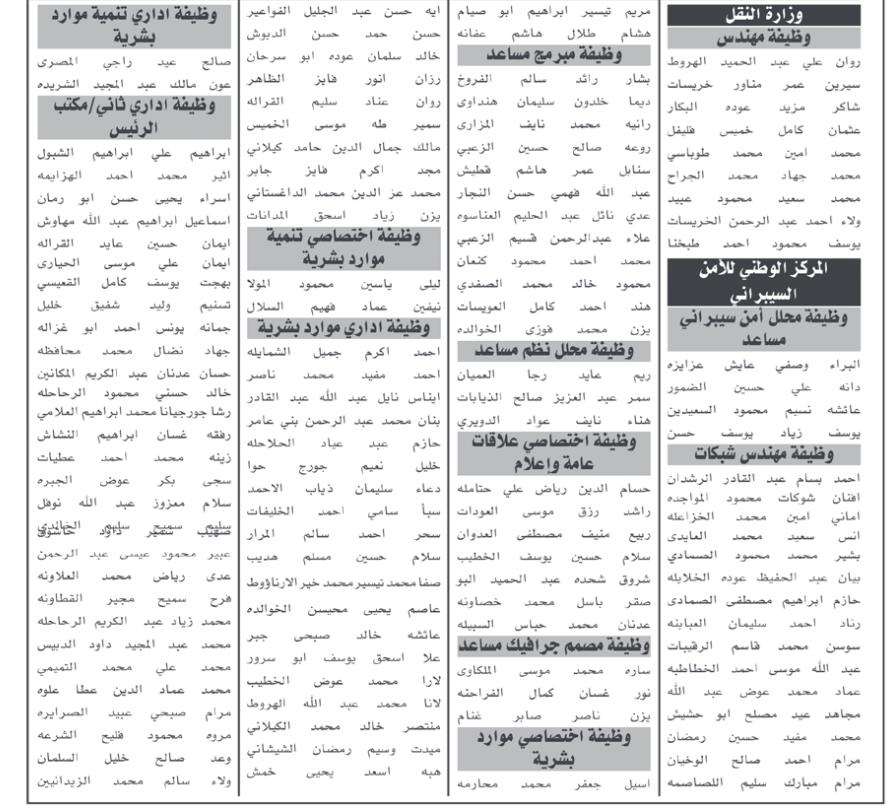 وزارة النقل
وظيفة مهندس
روان علي عبد الحميد الهروط
سيرين عمر مناور خريسات
شاكر مزيد عوده البكار
عثمان كامل خميس فليفل
محمد امين محمد طوباسي
محمد جهاد محمد الجراح
محمد سعيد محمود عبيد
ولاء احمد عبد الرحمن الخريسات
يوسف محمود احمد طبخنا
المركز الوطني للأمن
السيبراني
وظيفة محلل أمن سيبراني
مساعد
البراء وصفي عايش عزايزه
دانه علي حسين الضمور
عائشه نسيم محمود السعيدين
يوسف زياد يوسف حسن
وظيفة مهندس شبكات
احمد بسام عبد القادر الرشدان
افنان شوكات محمود المواجده
اماني امين محمد الخزاعله
انس سعيد محمد العايدى
بشير محمد محمود الصمادي
بيان عبد الحفيظ عوده الخلايله
حازم ابراهيم مصطفى الصمادى
رناد احمد سليمان العبابنه
سوسن محمد قاسم الرقيبات
عبد الله موسى احمد الخطاطبه
عماد محمد عوض عبد الله
مجاهد عيد مصلح ابو حشيش
محمد مفيد حسين رمضان
مرام احمد صالح الوخيان
مرام مبارك سليم اللصاصمه
مريم تيسير ابراهيم ابو صيام
هشام طلال هاشم عفانه
وظيفة مبرمج مساعد
بشار رائد سالم الفروخ
ديما خلدون سليمان هنداوى
رانيه محمد نايف المزارى
روعه صالح حسين الزعبي
سنابل عمر هاشم قطيش
عبد الله فهمي حسن النجار
عدي نائل عبد الحليم العناسوه
علاء عبدالرحمن قسيم الزعبي
محمد احمد محمود كنعان
محمود خالد محمد الصفدي
هند احمد كامل العويسات
يزن محمد فوزى الخوالده
وظيفة محلل نظم مساعد
ريم عايد رجا العميان
سمر عبد العزيز صالح الذيابات
هناء نايف عواد الدويري
وظيفة اختصاصي علاقات
عامة وإعلام
حسام الدين رياض علي حتامله
راشد رزق موسى العودات
ربيع منيف مصطفى العدوان
سلام حسين يوسف الخطيب
شروق شحده عبد الحميد البو
صقر باسل محمد خصاونه
عدنان محمد حباس السبيله
وظيفة مصمم جرافيك مساعد
ساره محمد موسى الملكاوى
نور غسان كمال الفراحنه
يزن ناصر صابر غنام
وظيفة اختصاصي موارد
بشرية
اسيل جعفر محمد محارمه
ايه حسن عبد الجليل الفواعير
حسن حمد حسن الدبوش
خالد سلمان عوده ابو سرحان
رزان انور فايز الظاهر
روان عناد سليم القراله
سمير طه موسى الخميس
مالك جمال الدين حامد كيلاني
مجد اكرم فايز جابر
محمد عز الدين محمد الداغستاني
يزن زياد اسحق المدانات
وظيفة اختصاصي تنمية
موارد بشرية
ليلى ياسين محمود المولا
نيفين عماد فهيم السلال
وظيفة اداري موارد بشرية
احمد اكرم جميل الشمايله
احمد مفيد محمد ناصر
ايناس نايل عبد الله عبد القادر
بنان محمد عبد الرحمن بني عامر
حازم عبد عياد الحلاحله
خليل نعيم جورج حوا
دعاء سليمان ذياب الاحمد
سبأ سامي احمد الخليفات
سحر احمد سالم المرار
سلام حسين مسلم هديب
صفا محمد تيسير محمد خير الارناؤوط
عاصم يحيى محيسن الخوالده
عائشه خالد صبحي جبر
علا اسحق يوسف ابو سرور
لارا محمد عوض الخطيب
لانا محمد عبد الله الهروط
منتصر خالد محمد الكيلاني
ميدت وسيم رمضان الشيشاني
هبه اسعد يحيى خمش
وظيفة اداري تنمية موارد
بشرية
صالح عيد راجي المصرى
عون مالك عبد المجيد الشريده
وظيفة اداري ثاني/مكتب
الرئيس
ابراهيم علي ابراهيم الشبول
اثير محمد احمد الهزايمه
اسراء يحيى حسن ابو رمان
اسماعيل ابراهيم عبد الله مهاوش
ايمان حسين عايد القراله
ايمان علي موسى الحيارى
بهجت يوسف كامل القعيسي
تسنيم وليد شفيق خليل
جمانه يونس احمد ابو غزاله
جهاد نضال محمد محافظه
حسان عدنان عبد الكريم المكانين
خالد حسني محمود الرحاحله
رشا جورجيانا محمد ابراهيم العلامي
رفقه غسان ابراهيم النشاش
زينه محمد احمد عطيات
سجى بكر عوض الجبره
سلام معزوز عبد الله نوفل
سليم سميح سليم الخالدي
صهيب سمير داود حاشوق
عبير محمود عيسى عبد الرحمن
عدى رياض محمد العلاونه
فرح سميح مجير القطاونه
محمد زياد عبد الكريم الرحاحله
محمد عبد المجيد داود الدبيس
محمد علي محمد التميمي
محمد عماد الدين عطا علوه
مرام صبحي عبيد الصرايره
مروه محمود فليح الشرعه
وعد صالح خليل السلمان
ولاء سالم محمد الزيدانيين